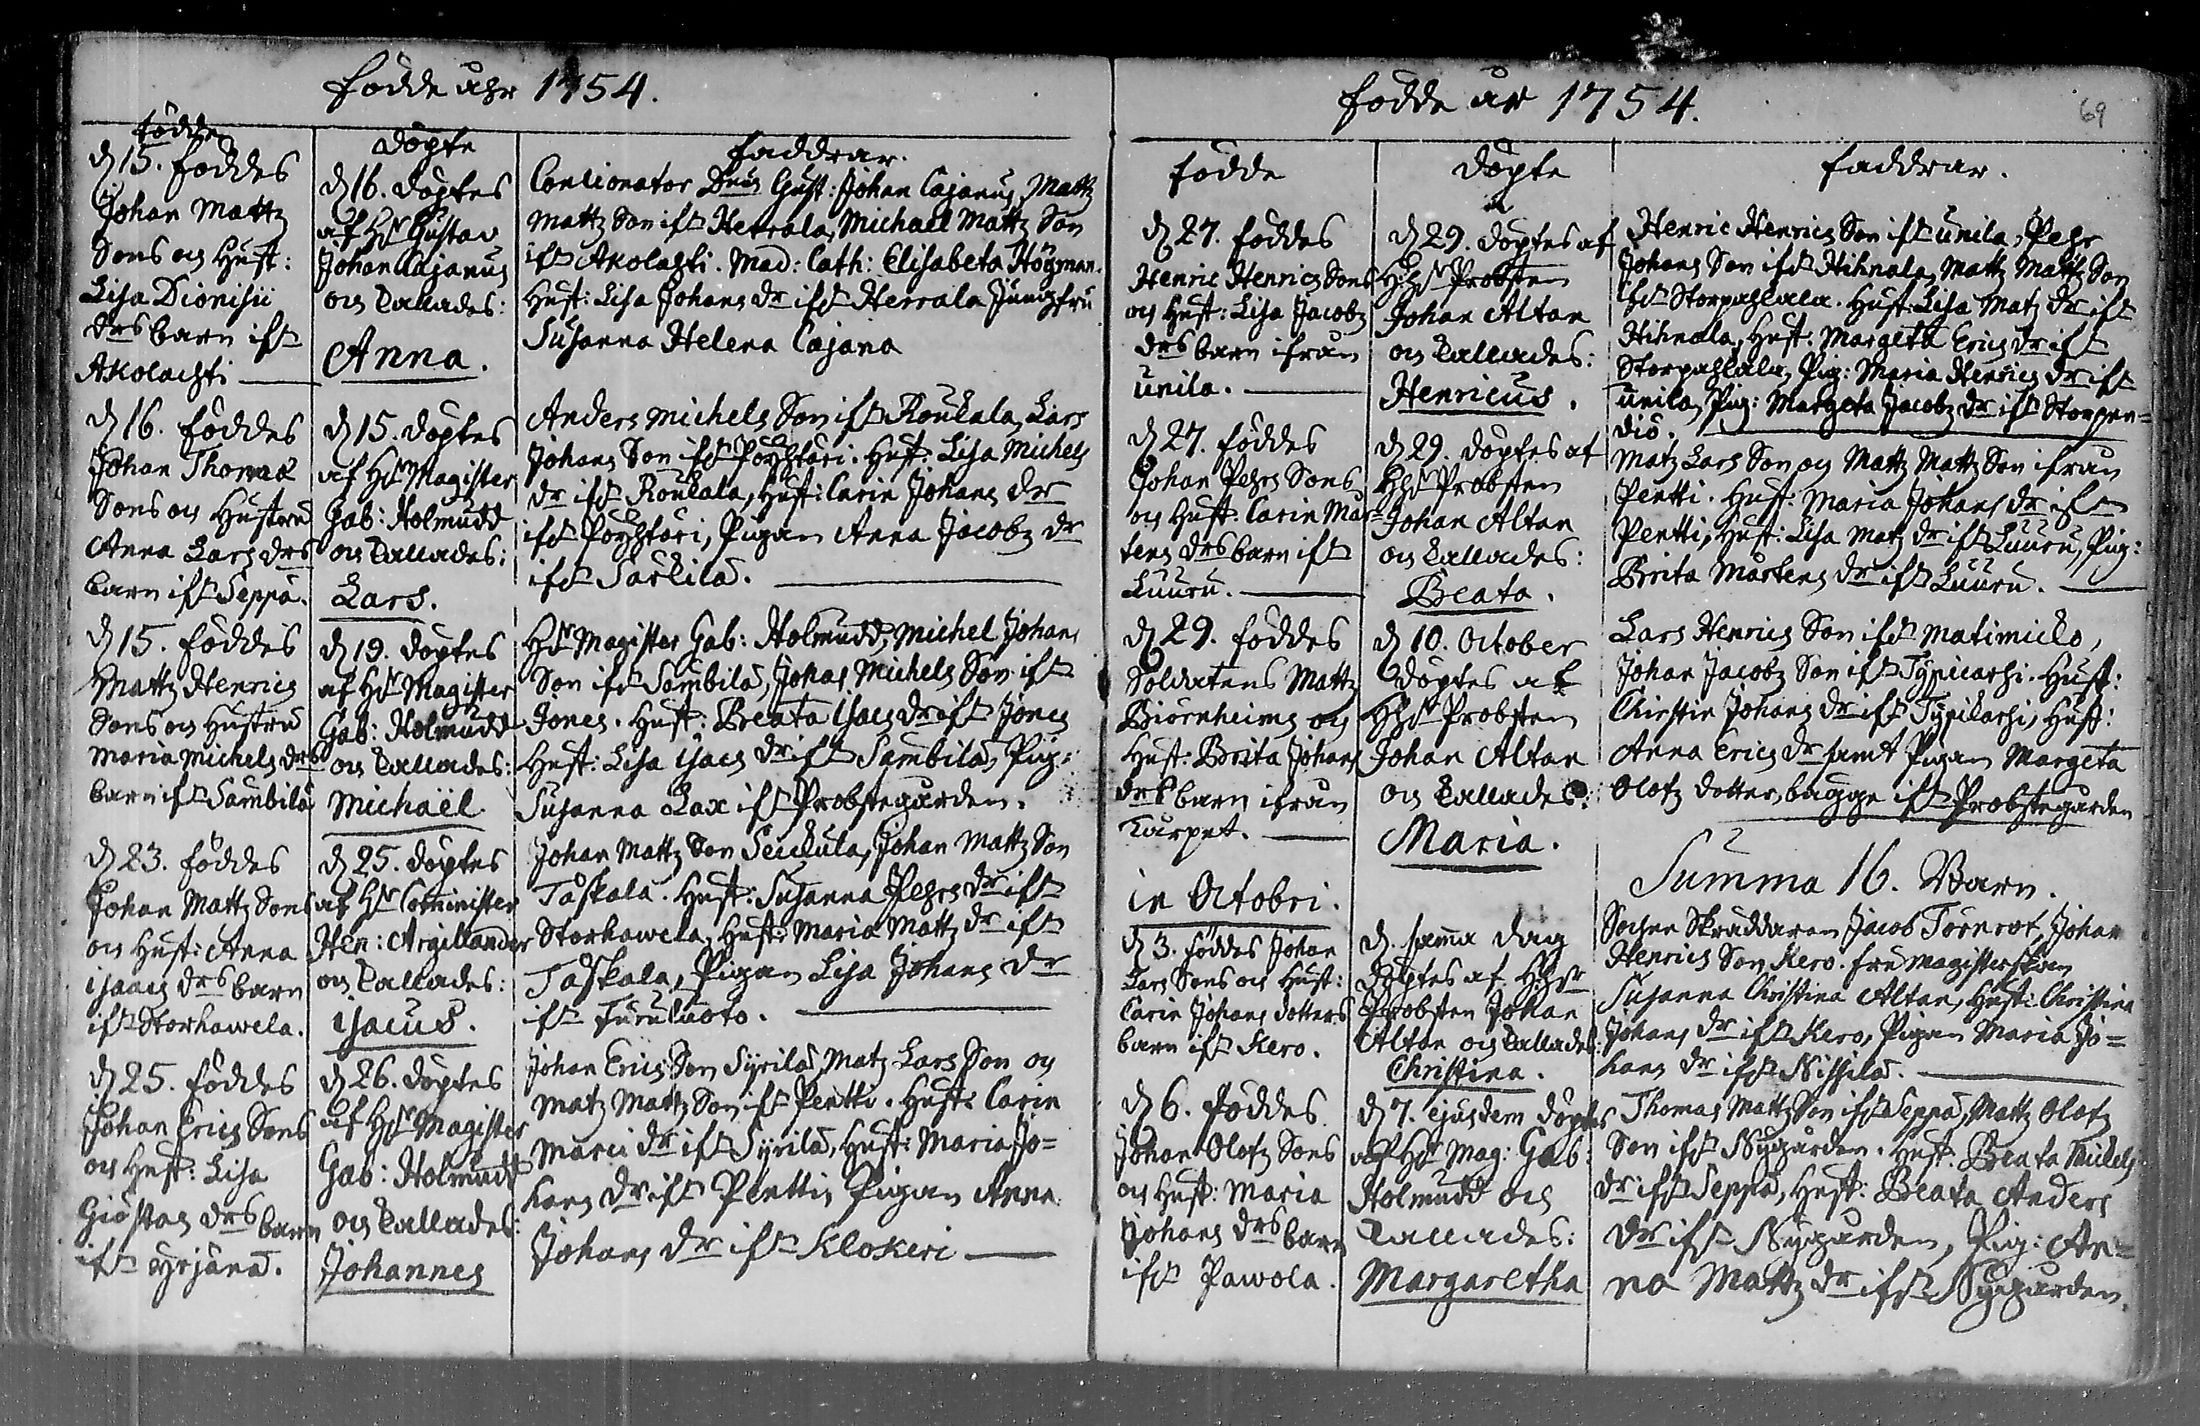 födde åhr 1754.
födde
döpte
faddrar.
d 15. föddes
Johan Mattz
Sons och Hust:
Lisa Dionisii
drs barn ifr
Akolachti
d 16. döptes
af Hr Gustav
Johan Cajanus
och kallades:
Anna.
Concionator Dnus Gust: Johan Cajanus, Mattz
Mattz Son ifr Herrala, Michael Mattz Son
ifr Akolachti. Mad: Cath: Elisabeta Högman.
Hust: Lisa Johans dr ifr Herrala Jungfru
Susanna Helena Cajana
d 16. föddes
Johan Thomæ
Sons och Hustru
Anna Lars drs
barn ifr Seppä.
d 15. döptes
af Hr Magister
Gab: Holmudd
och kallades:
Lars.
Anders Michels Son ifr Roukala, Lars
Johans Son ifr Pöyhtäri. Hust: Lisa Michels
dr ifr Roukala, Hust: Carin Johans dr
ifr Pöyhtäri, Pigan Anna Jacobz dr
ifr Sarkila.
d 15. föddes
Mattz Henrics
Sons och Hustru
Maria Michels drs
barn ifr Sambila
d 19. döptes
af Hr Magister
Gab: Holmudd
och kallades:
Michaël
Hr Magister Gab: Holmudd, Michel Johans
Son ifr Sambila, Johas Michels Son ifr
Jones. Hust: Beata Isacs dr ifr Jones
Hust: Lisa Isacs dr ifr Sambila, Pig:
Susanna Lax ifr Probstegården.
d 23. föddes
Johan Mattz Sons
och Hust: Anna
Isaacs drs barn
ifr Storhawela.
d 25. döptes
af Hr Comminister
Hen: Argillander
och kallades:
Isacus.
Johan Mattz Son Seickula, Johan Mattz Son
Taskala. Hust: Susanna Pehrs dr ifr
Storhawela, Hust: Maria Mattz dr ifr
Taskala, Pigan Lisa Johans dr
ifr Furuluoto.
d 25. föddes
Johan Erics Sons
och Hust: Lisa
Giöstas drs barn
ifr Yrjänä.
d 26. döptes
af Hr Magister
Gab: Holmudd
och kallades:
Johannes
Johan Erics Son Syrilä, Matz Lars Son och
Matz Mattz Son ifr Pentti. Hust: Carin
Marci dr ifr Syrilä, Hust: Maria Jo=
hans dr ifr Pentti, Pigan Anna
Johans dr ifr Klokeri
födde år 1754.
69
födde
döpte
faddrar.
d 27. föddes
Henric Henrics Sons
och Hust: Lisa Jacobz
drs barn ifrån
Unila.
d 29. döptes af
HHr Probsten
Johan Altan
och kallades:
Henricus.
Henric Henrics Son ifr Unila, Pehr
Johans Son ifr Hihnala, Mattz Mattz Son
ifr Storpahlala. Hust: Lisa Matz dr ifr
Hihnala, Hust: Margeta Erics dr ifr
Storpahlala, Pig: Maria Henrics dr ifr
Unila, Pig: Margeta Jacobz dr ifr Storpen=
diö.
d 27. föddes
Johan Pehrs Sons
och Hust. Carin Mår=
tens drs barn ifr
Luuru.
d 29. döptes af
HHr Probsten
Johan Altan
och kallades:
Beata.
Matz Lars Son och Mattz Mattz Son ifrån
Pentti. Hust: Maria Johans dr ifr
Pentti, Hust: Lisa Matz dr ifr Luuru, Pig:
Brita Mårtens dr ifr Luuru.
d 29. föddes
Soldatens Mattz
Biörnheims och
Hust: Brita Johans
drs barn ifrån
Karpet.
d 10. October
döptes af
HHr Probsten
Johan Altan
och kallades:
Maria.
Lars Henrics Son ifr Matimicko,
Johan Jacobz Son ifr Typicarhi. Hust:
Chirstin Johans dr ifr Typikarhi, Hust:
Anna Erics dr samt Pigan Margeta
Olofz dotter, bagge ifr Probstegården
Summa 16. Barn.
in Octobri.
d 3. föddes Johan
Lars Sons och Hust:
Carin Johans dotters
barn ifr Kero.
d. sama dag
döptes af HHr
Probsten Johan
Altan och kallades:
Christina.
Sochne Skräddaren Jacob Törnrot, Johan
Henrics Son Kero. fru Magisterskan
Susanna Christina Altan, Hust: Christina
Johans dr ifr Kero, Pigan Maria Jo=
hans dr ifr Nissilä.
d 6. föddes
Johan Olofz Sons
och Hust: Maria
Johans drs barn
ifr Pawola.
d 7. ejusdem döptes
af Hr Mag: Gab:
Holmudd och
kallades:
Margaretha
Thomas Mattz Son ifr Seppä, Mattz Olofz
Son ifr Nygården. Hust. Beata Michels
dr ifr Seppä, Hust: Beata Anders
dr ifr Nygården, Pig: An=
na Mattz dr ifr Nygården.